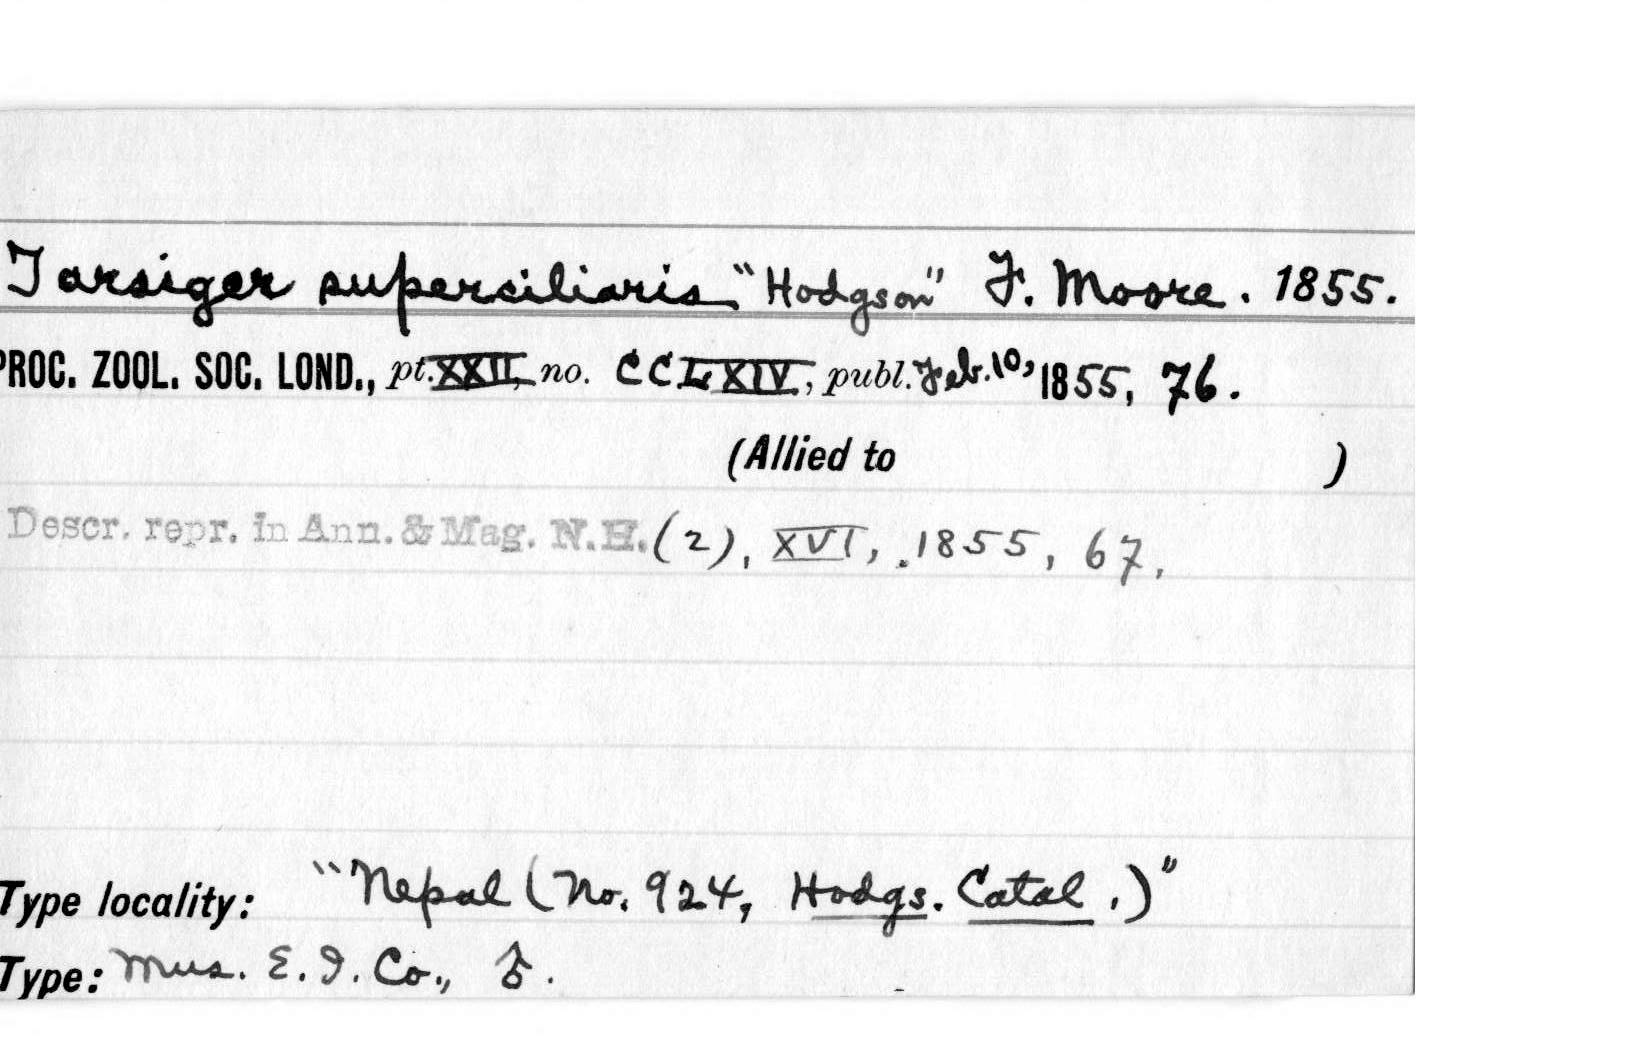 Tarsiger superciliaris "Hodgson" F. Moore. 1855.
PROC. ZOOL. SOC. LOND., pt. XXII, no. CCLXIV, publ. Feb. 10, 1855, 76.
(Allied to )
Descr. repr. in Ann. & Mag. N.H. (2), XVI, 1855, 67.
Type locality: "Nepal (No. 924, Hodgs. Catal.)"
Type: Mus. E. I. Co., ♂.